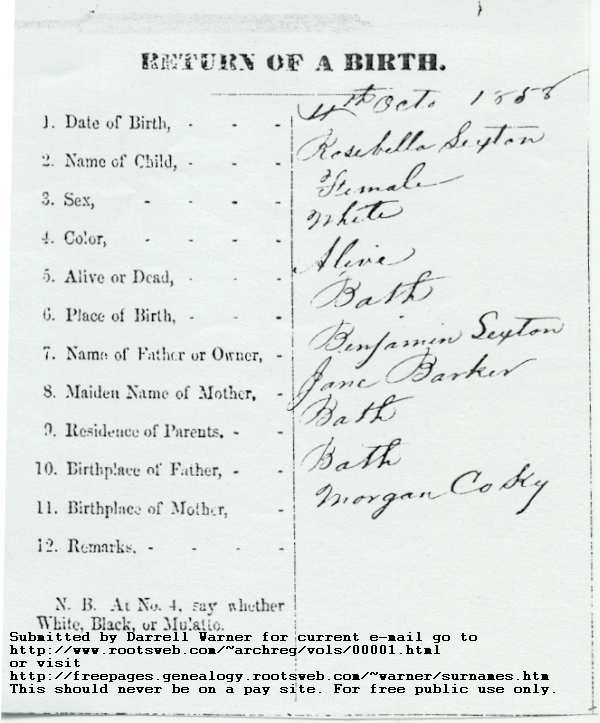 RETURN OF A BIRTH.
1. Date of Birth, - - - 4th Octo 1858
2. Name of Child, - - - Rosebella Sexton
3. Sex, - - - - Female
4. Color, - - - - White
5. Alive or Dead, - - - Alive
6. Place of Birth, - - - Bath
7. Name of Father or Owner, - Benjamin Sexton
8. Maiden Name of Mother, - Jane Barker
9. Residence of Parents, - - Bath
10. Birthplace of Father, - - Bath
11. Birthplace of Mother, - Morgan Co Ky
12. Remarks, - - - -
N. B. At No. 4, say whether
White, Black, or Mulatto.
Submitted by Darrell Warner for current e-mail go to
http://www.rootsweb.com/~archreg/vols/00001.html
or visit
http://freepages.genealogy.rootsweb.com/~warner/surnames.htm
This should never be on a pay site. For free public use only.